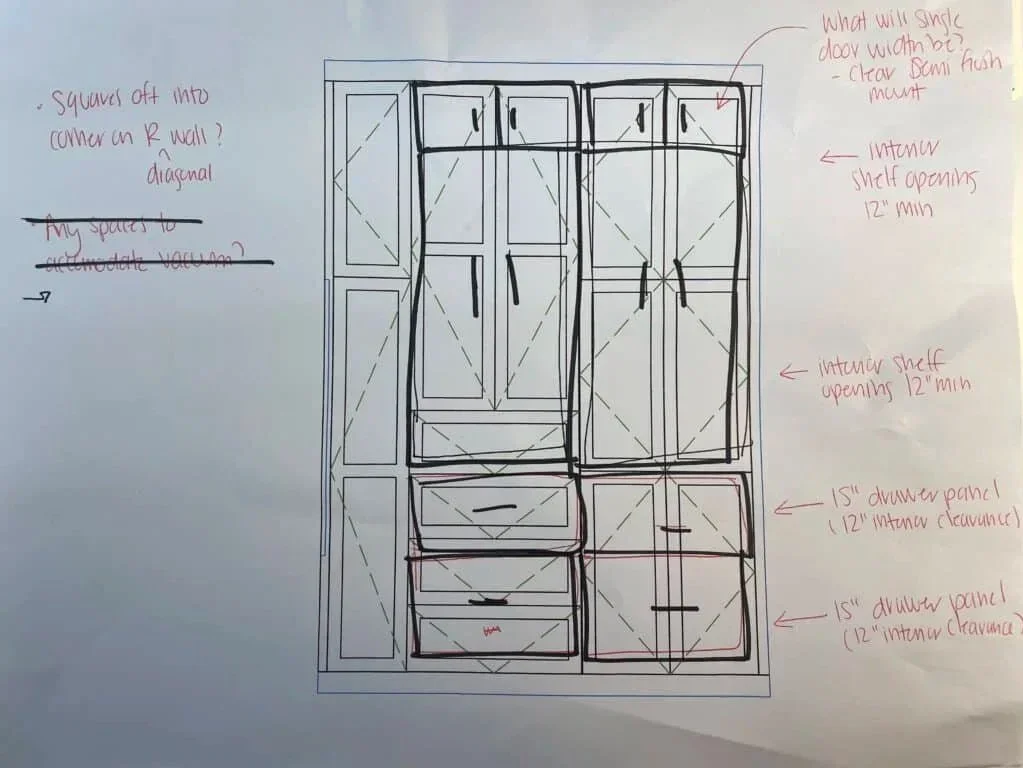 · Squares off into
corner on R wall?
^
diagonal
· Any spaces to
accomodate vacuum?
What will single
door width be?
- Clear Semi flush
mount
← interior
shelf opening
12" min
← interior shelf
opening 12" min
← 15" drawer panel
(12" interior clearance)
← 15" drawer panel
(12" interior clearance)